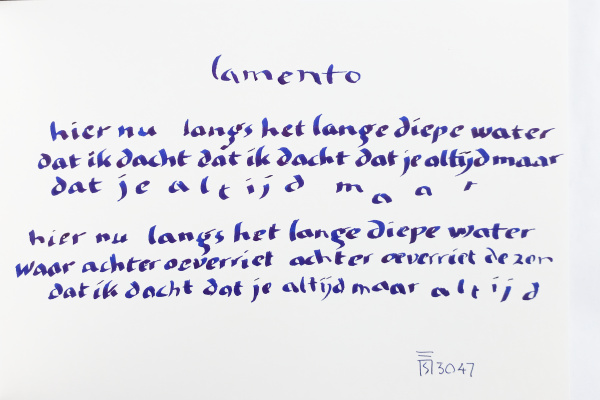 lamento
hier nu langs het lange diepe water
dat ik dacht dat ik dacht dat je altijd maar
dat je altijd maar
hier nu langs het lange diepe water
waar achter oeverriet achter oeverriet de zon
dat ik dacht dat je altijd maar altijd
3047